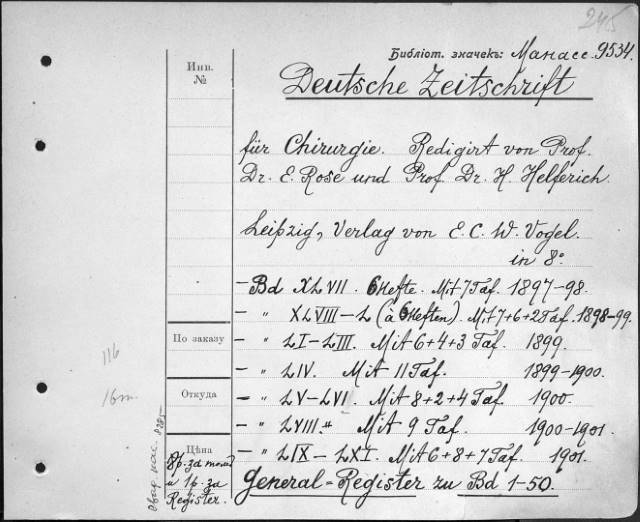 245
Библіот. значекъ: Манасс. 9534.
Инв. №
Deutsche Zeitschrift
für Chirurgie. Redigirt von Prof.
Dr. E. Rose und Prof. Dr. H. Helferich.
Leipzig, Verlag von E. C. W. Vogel.
in 8º
– Bd XLVII. 6 Hefte. Mit 7 Taf. 1897–98.
– " XLVIII–L (à 6 Heften). Mit 7+6+2 Taf. 1898–99.
По заказу
– " LI–LIII. Mit 6+4+3 Taf. 1899.
116
– " LIV. Mit 11 Taf. 1899–1900.
Откуда
16
– " LV–LVI. Mit 8+2+4 Taf. 1900.
– " LVIII. Mit 9 Taf. 1900–1901.
Цѣна
8р. за томъ
и 1р. за
Register.
– " LIX–LXI. Mit 6+8+7 Taf. 1901.
General-Register zu Bd 1–50.